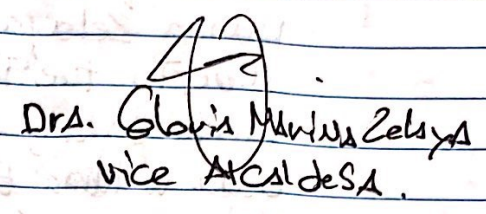 Dra. Gloria Marina Zelaya
vice Alcaldesa.